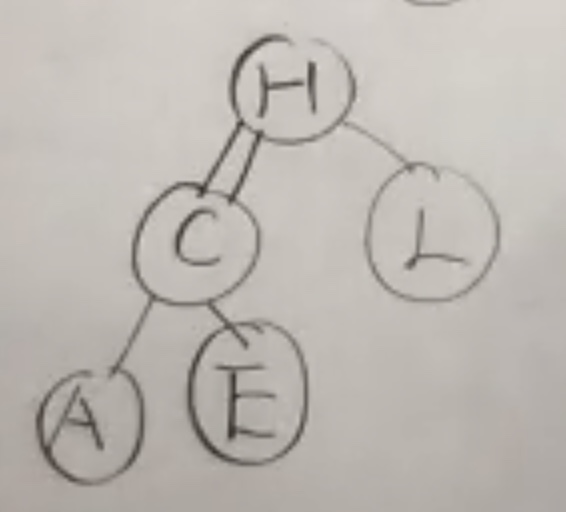 H
C L
A E